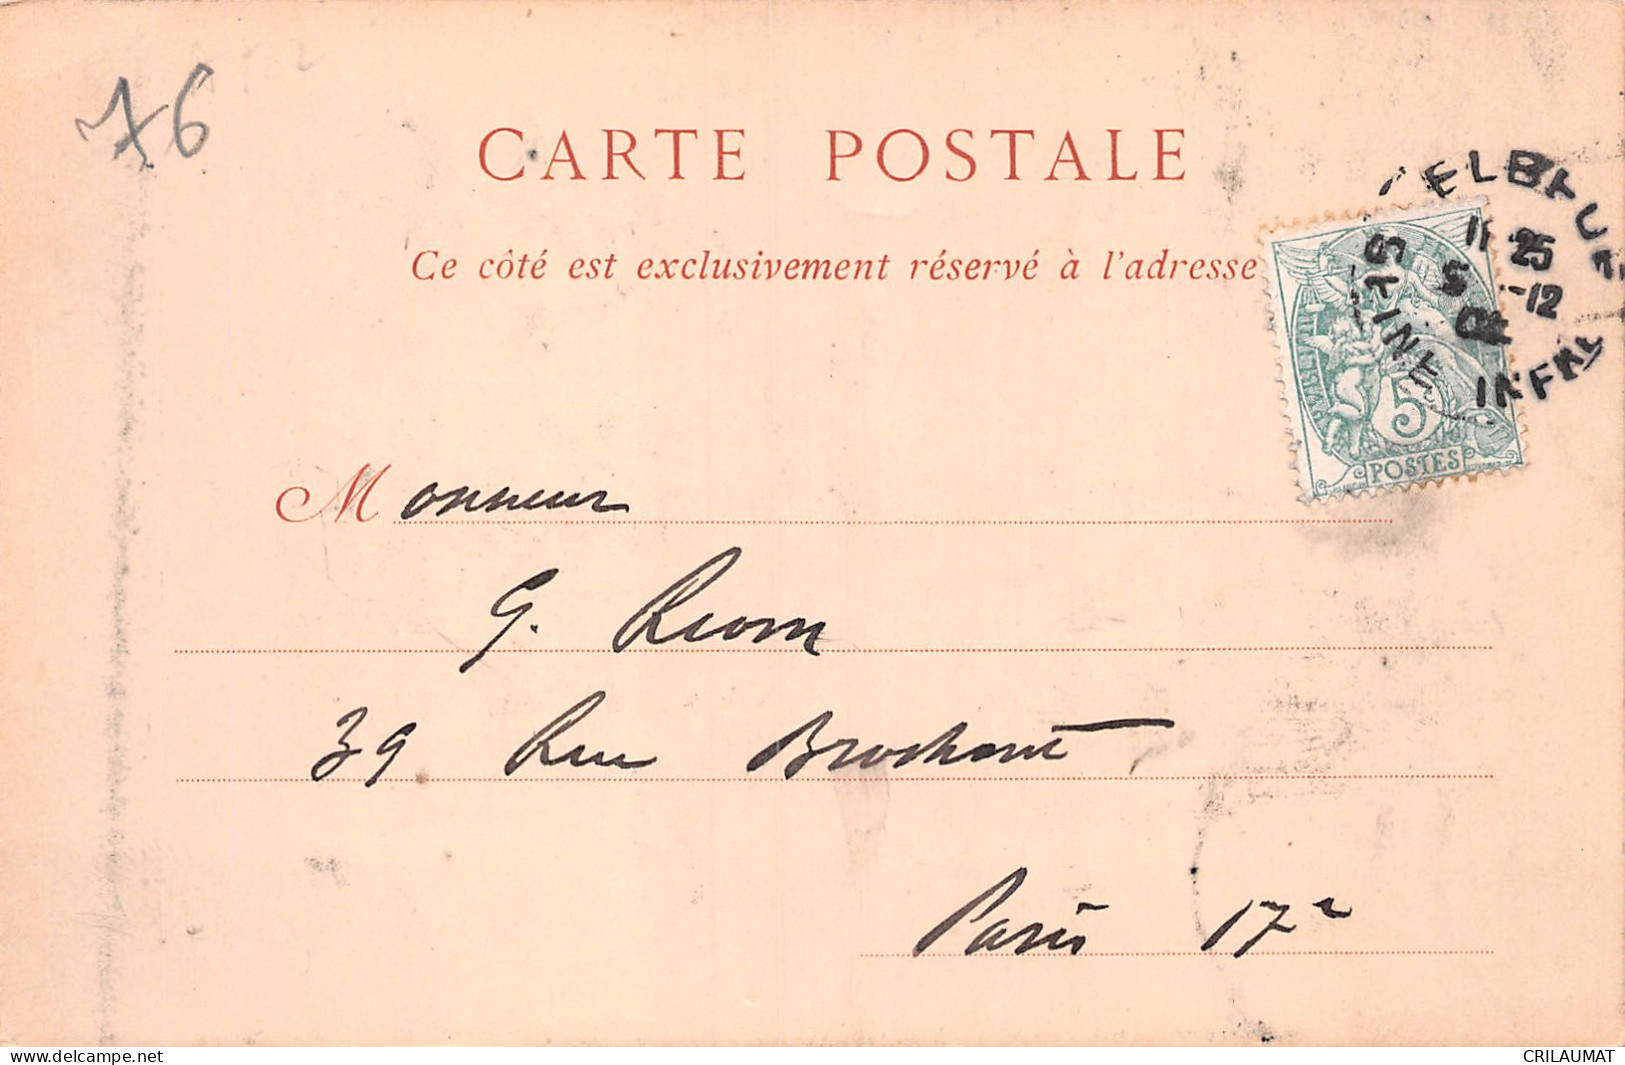 76
CARTE POSTALE
Ce côté est exclusivement réservé à l'adresse
ELBEUF
SEINE
INFRE
11 25
5 -12
5
POSTES
Monsieur
G. Riom
39 Rue Brochant
Paris 17e
delcampe.net
CRILAUMAT